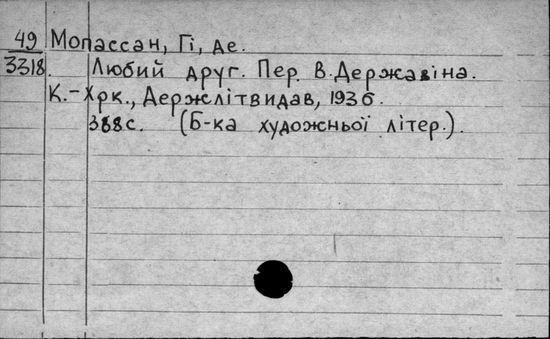 49 Мопассан, Гі, де.
3318. Любий друг. Пер. В. Державіна.
К.-Хрк., Держлітвидав, 1936.
388с. (Б-ка художньої літер.).